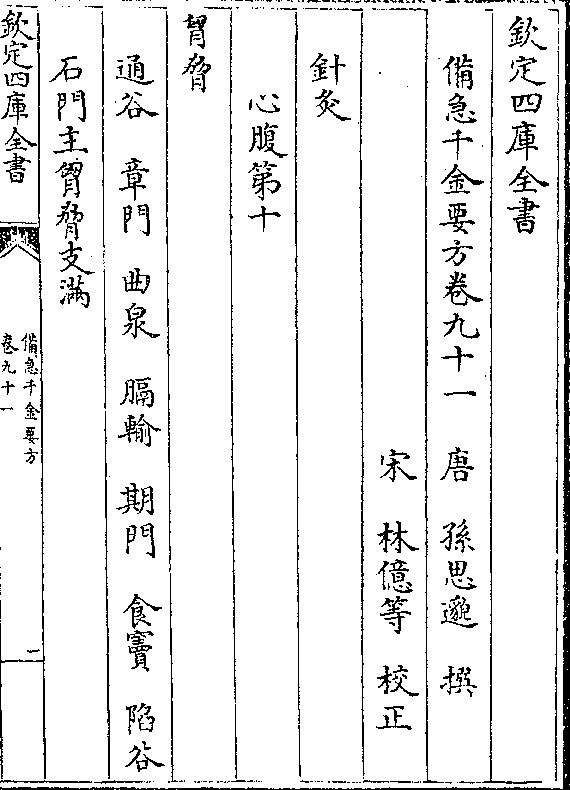 欽定四庫全書
備急千金要方卷九十一　唐　孫思邈　撰
宋　林億等　校正
針灸
心腹第十
胷脅
通谷　章門　曲泉　膈輸　期門　食竇　陷谷
石門主胷脅支滿
欽定四庫全書
備急千金要方
卷九十一
一